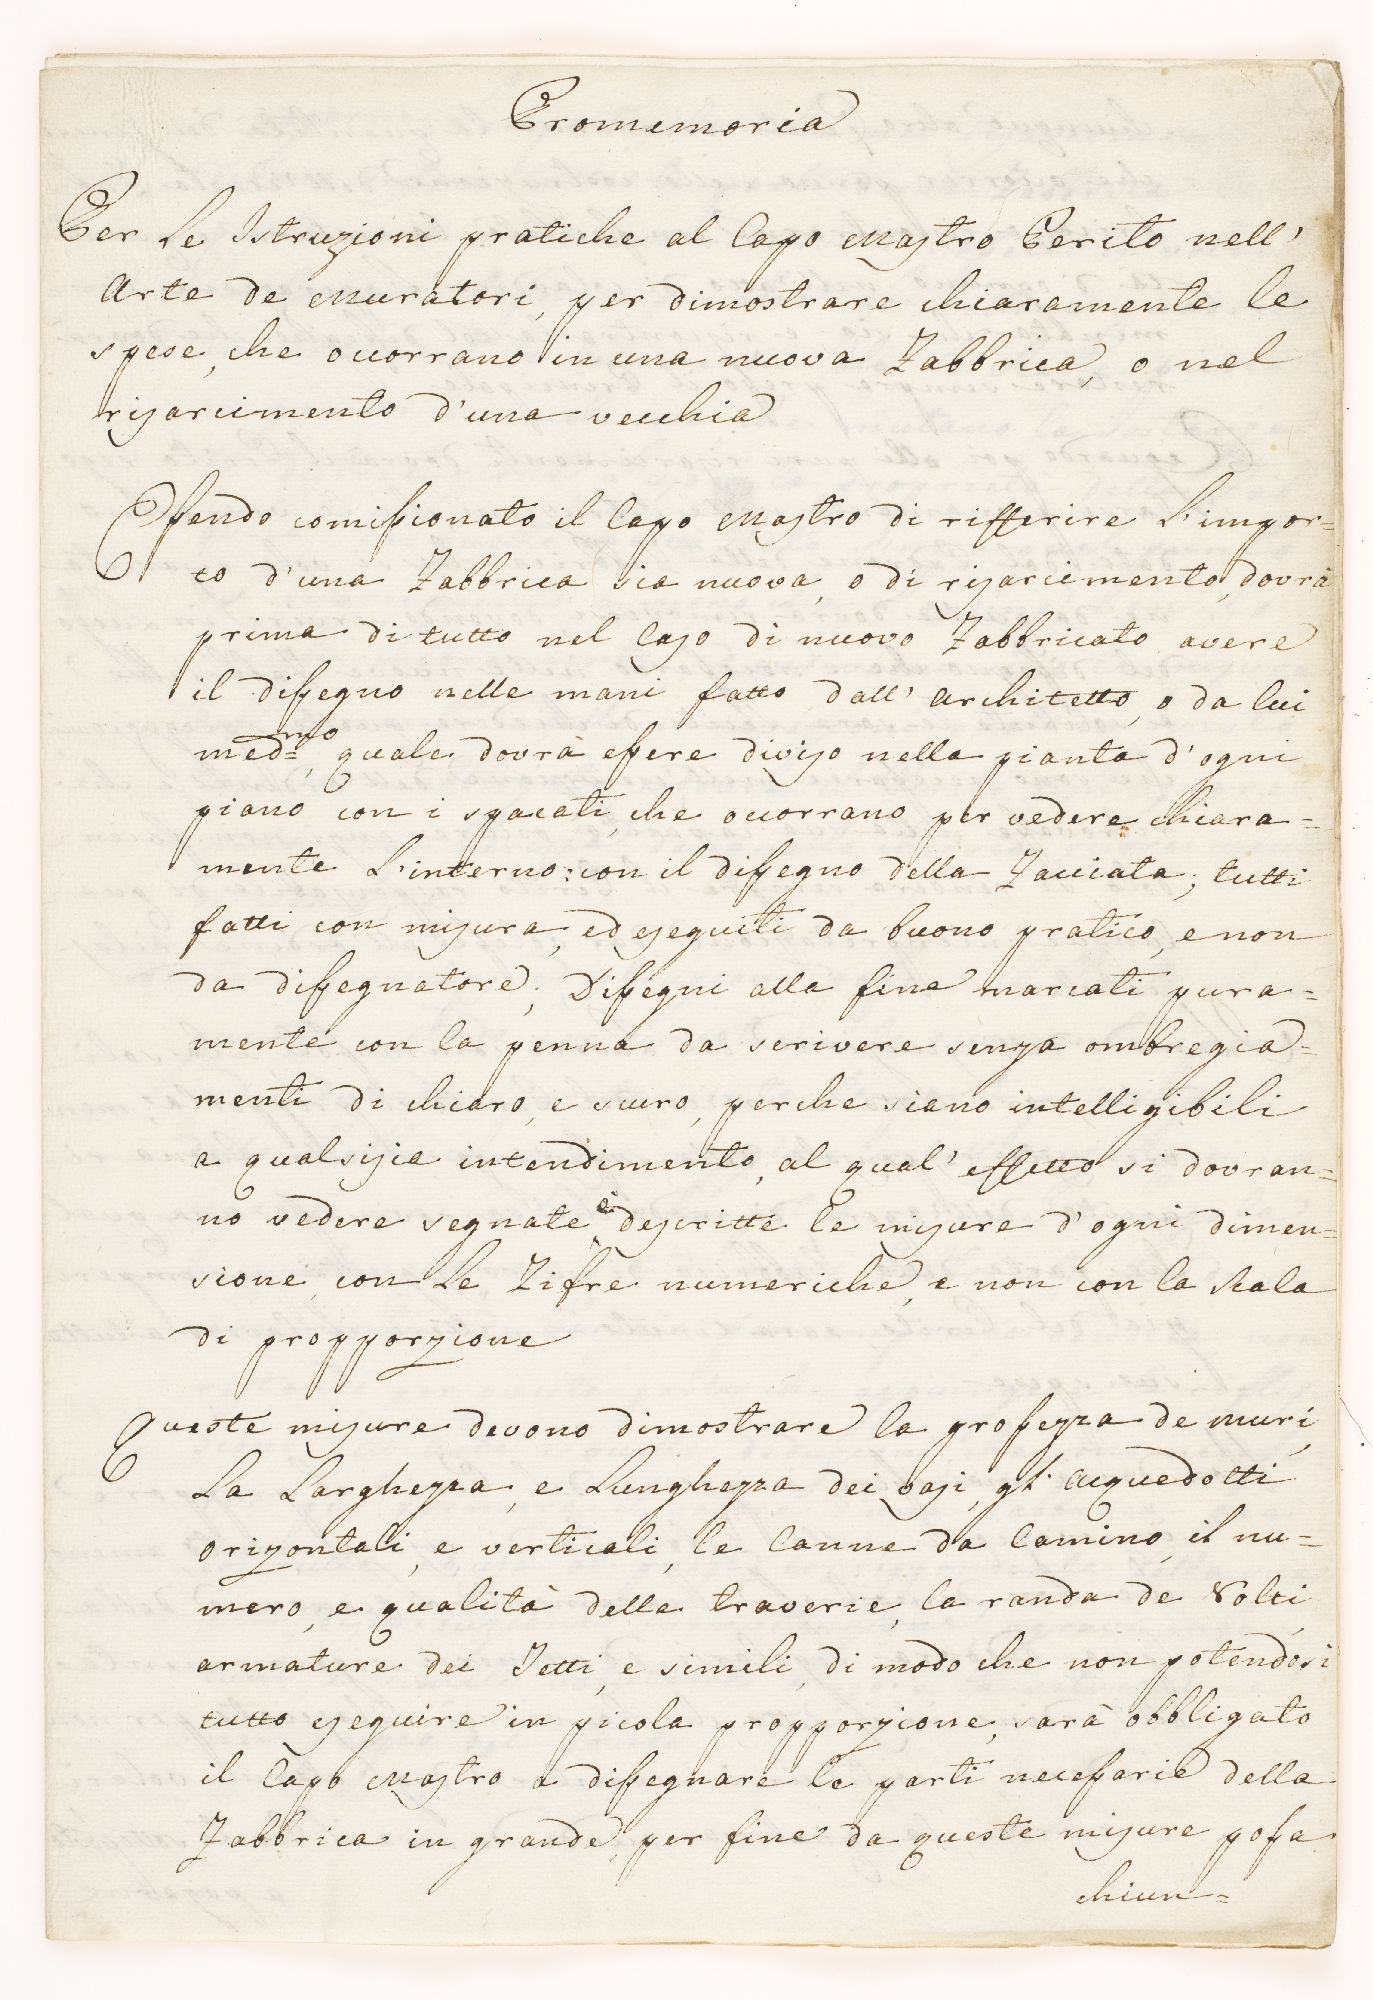 Promemoria
Per Le Istruzioni pratiche al Capo Mastro Perito nell'
Arte de Muratori, per dimostrare chiaramente le
spese, che ocorrano in una nuova Fabbrica, o nel
risarcimento d'una vecchia
Essendo comissionato il Capo Mastro di rifferire L'impor=
to d'una Fabbrica sia nuova, o di risarcimento, dovrà
prima di tutto nel caso di nuovo Fabbricato avere
il dissegno nelle mani fatto dall' Architetto, o da lui
med.mo, quale dovrà essere diviso nella pianta d'ogni
piano con i spacati, che ocorrano per vedere chiara=
mente L'interno: con il dissegno della Facciata; tutti
fatti con misura, ed eseguiti da buono pratico, e non
da dissegnatore; Dissegni alla fine marcati pura=
mente con la penna da scrivere senza ombregia=
menti di chiaro, e scuro, perche siano intelligibili
a qualsisia intendimento, al qual' effetto si dovran=
no vedere segnate e descritte le misure d'ogni dimen=
sione, con Le Zifre numeriche, e non con la Scala
di propporzione
Queste misure devono dimostrare la grossezza de muri,
La Larghezza, e Lunghezza dei vasi, gl' Acquedotti
orizontali, e verticali, le Canne da Camino, il nu=
mero, e qualità delle traverie, la randa de Volti,
armature dei Tetti, e simili, di modo che non potendosi
tutto eseguire in picola propporzione, sarà obbligato
il Capo Mastro a dissegnare le parti necessarie della
Fabbrica in grande, per fine da queste misure possa
chiun=